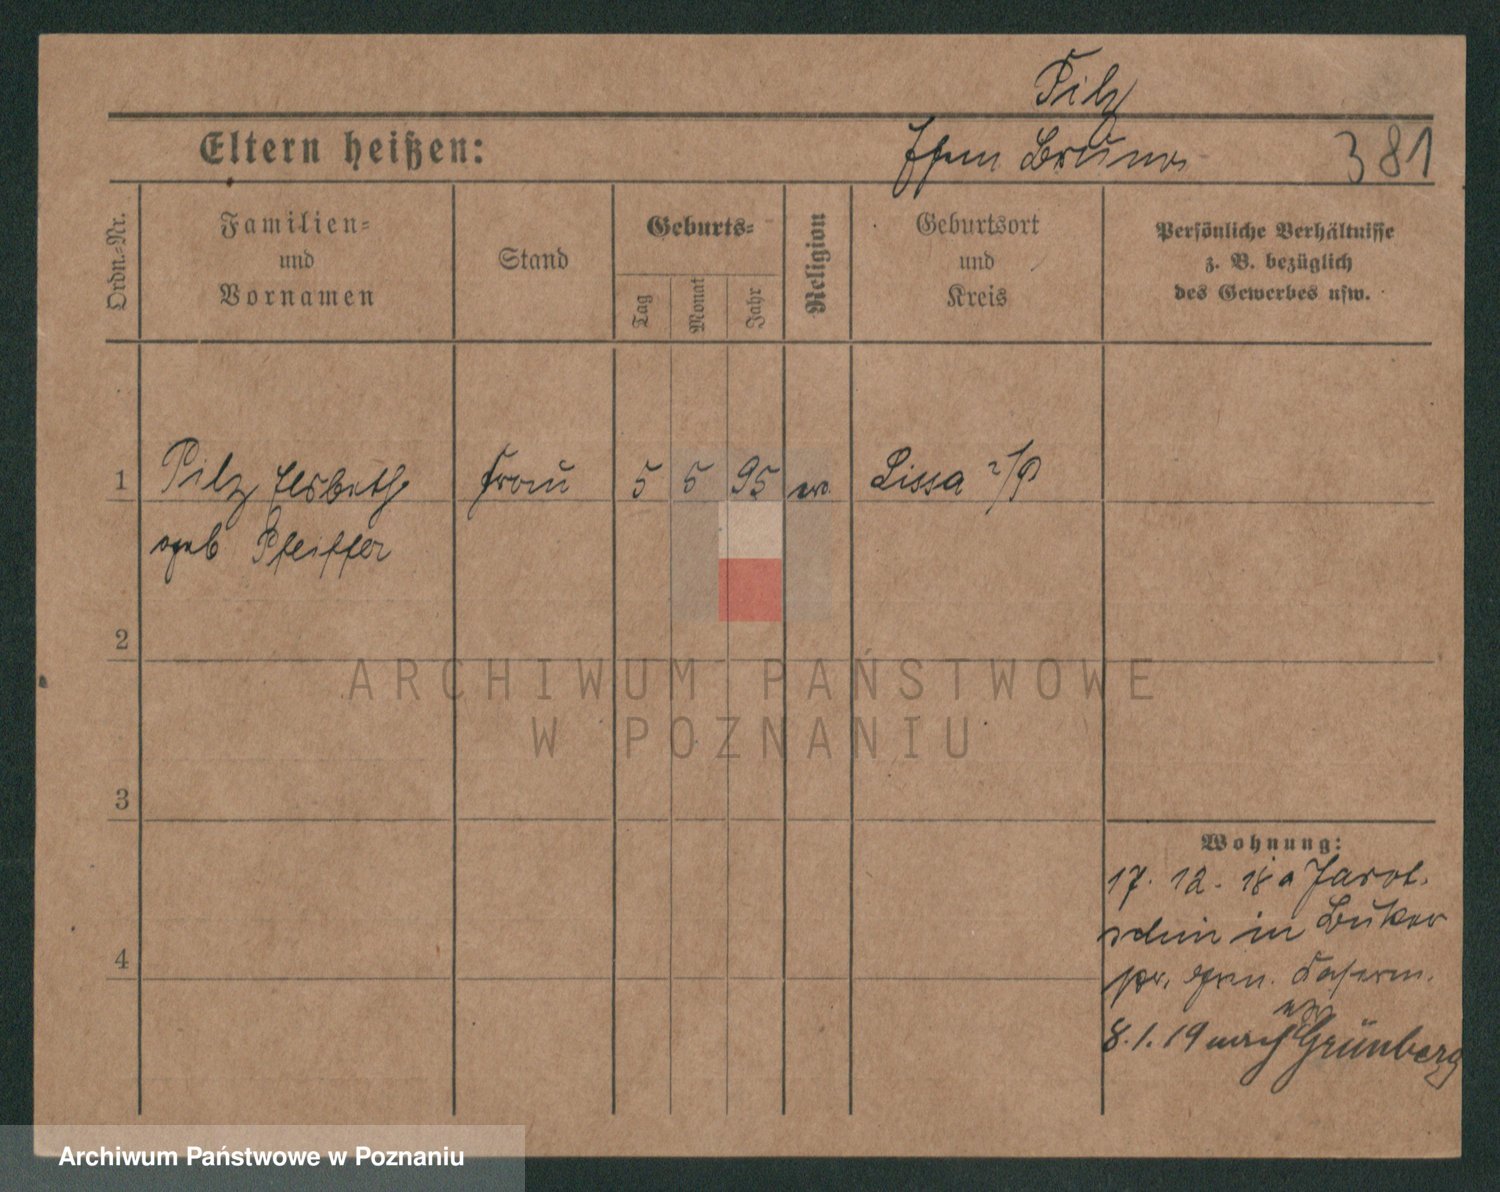 Pilz
Eltern heißen:
Bruno
381
Ordn.-Nr.
Familien-
und
Vornamen
Stand
Geburts-
Tag
Monat
Jahr
Religion
Geburtsort
und
Kreis
Persönliche Verhältnisse
z. B. bezüglich
des Gewerbes usw.
1
Pilz Elsbeth
geb Pfeiffer
Frau
5
5
95
ev.
Lissa
2
3
4
Wohnung:
17. 12. 18 a Jarot-
schin in Buker
8. 1. 19 nach Grünberg
ARCHIWUM PAŃSTWOWE
W POZNANIU
Archiwum Państwowe w Poznaniu